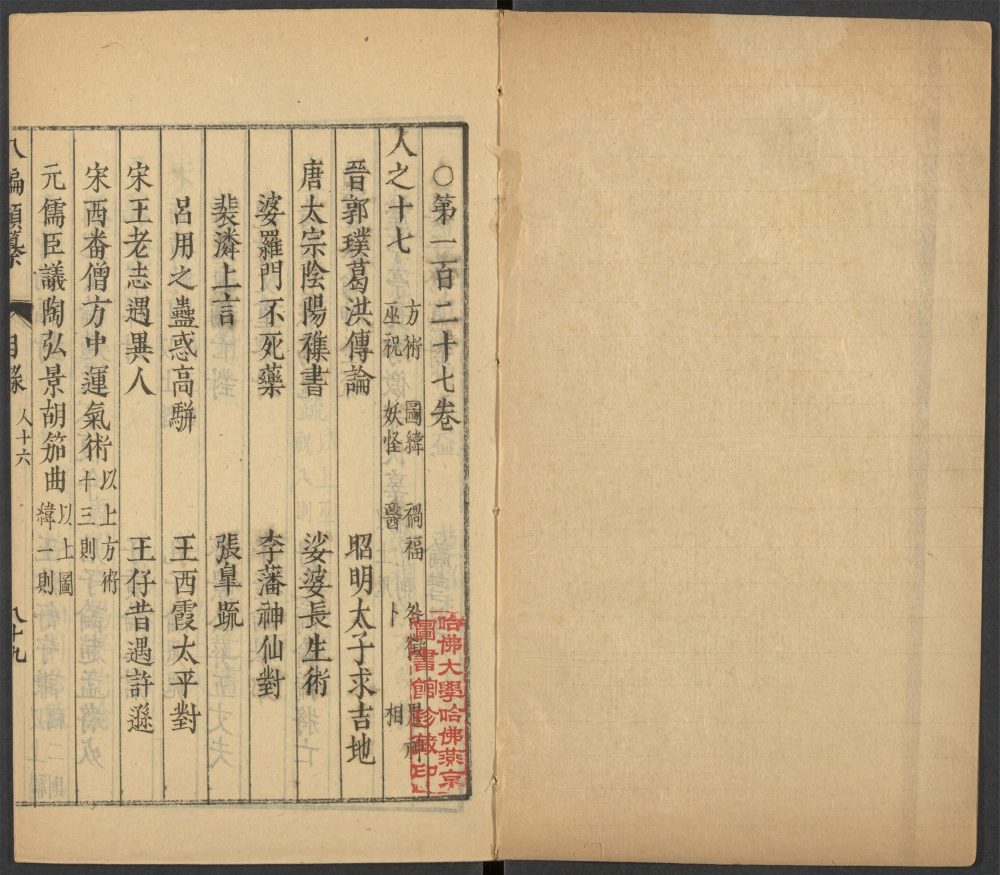 ○第一百二十七卷
人之十七 方術 圖緯 禍福 咎徵 鬼神
巫祝 妖怪 醫 卜 相
晉郭璞葛洪傳論 昭明太子求吉地
唐太宗陰陽襍書 娑婆長生術
婆羅門不死藥 李藩神仙對
裴潾上言 張臯疏
呂用之蠱惑高駢 王西霞太平對
宋王老志遇異人 王仔昔遇許遜
宋西畨僧方中運氣術 以上方術十三則
元儒臣議陶弘景胡笳曲 以上圖緯一則
八編類纂 目錄 人十六 八十九
哈佛大學哈佛燕京
圖書館珍藏印